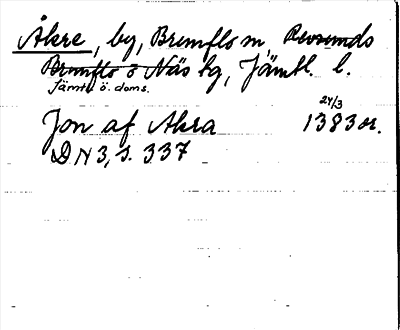 Åkre, by, Brunflo sn, Revsunds
Brunflo o Näs tg, Jämtl. l.
Jämtl. ö. doms.
Jon af Akra 24/3 1383 or.
DN 3, s. 337